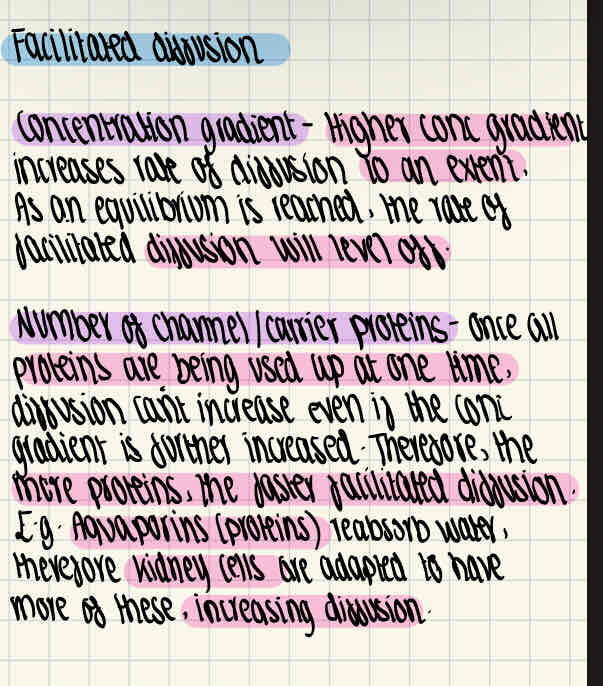 Facilitated diffusion
Concentration gradient - Higher conc gradient
increases rate of diffusion to an extent.
As an equilibrium is reached, the rate of
facilitated diffusion will level off.
Number of channel/carrier proteins - once all
proteins are being used up at one time,
diffusion can't increase even if the conc
gradient is further increased. Therefore, the
more proteins, the faster facilitated diffusion.
E.g. Aquaporins (proteins) reabsorb water,
therefore kidney cells are adapted to have
more of these, increasing diffusion.